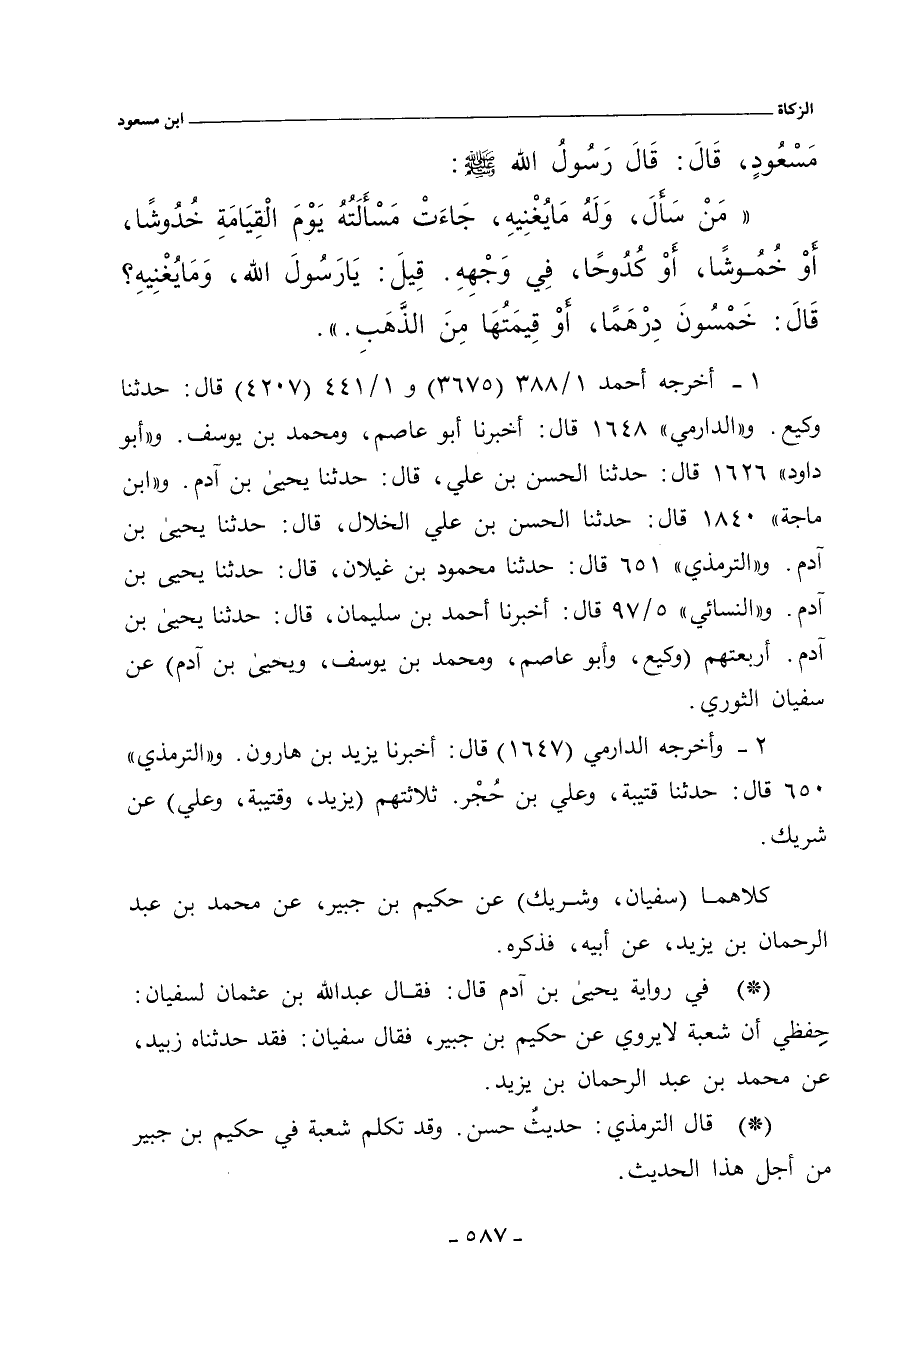 الزكاة ابن مسعود
مَسْعُودٍ، قَالَ: قَالَ رَسُولُ الله ﷺ:
« مَنْ سَأَلَ، وَلَهُ مَايُغْنِيهِ، جَاءَتْ مَسْأَلَتُهُ يَوْمَ الْقِيَامَةِ خُدُوشًا،
أَوْ خُمُوشًا، أَوْ كُدُوحًا، فِي وَجْهِهِ. قِيلَ: يَارَسُولَ الله، وَمَايُغْنِيهِ؟
قَالَ: خَمْسُونَ دِرْهَمًا، أَوْ قِيمَتُهَا مِنَ الذَّهَبِ.».
١ - أخرجه أحمد ٣٨٨/١ (٣٦٧٥) و ٤٤١/١ (٤٢٠٧) قال: حدثنا
وكيع. و«الدارمي» ١٦٤٨ قال: أخبرنا أبو عاصم، ومحمد بن يوسف. و«أبو
داود» ١٦٢٦ قال: حدثنا الحسن بن علي، قال: حدثنا يحيىٰ بن آدم. و«ابن
ماجة» ١٨٤٠ قال: حدثنا الحسن بن علي الخلال، قال: حدثنا يحيىٰ بن
آدم. و«الترمذي» ٦٥١ قال: حدثنا محمود بن غيلان، قال: حدثنا يحيى بن
آدم. و«النسائي» ٩٧/٥ قال: أخبرنا أحمد بن سليمان، قال: حدثنا يحيىٰ بن
آدم. أربعتهم (وكيع، وأبو عاصم، ومحمد بن يوسف، ويحيىٰ بن آدم) عن
سفيان الثوري.
٢ - وأخرجه الدارمي (١٦٤٧) قال: أخبرنا يزيد بن هارون. و«الترمذي»
٦٥٠ قال: حدثنا قتيبة، وعلي بن حُجْر. ثلاثتهم (يزيد، وقتيبة، وعلي) عن
شريك.
كلاهما (سفيان، وشريك) عن حكيم بن جبير، عن محمد بن عبد
الرحمان بن يزيد، عن أبيه، فذكره.
(*) في رواية يحيىٰ بن آدم قال: فقال عبدالله بن عثمان لسفيان:
حِفظي أن شعبة لايروي عن حكيم بن جبير، فقال سفيان: فقد حدثناه زبيد،
عن محمد بن عبد الرحمان بن يزيد.
(*) قال الترمذي: حديثٌ حسن. وقد تكلم شعبة في حكيم بن جبير
من أجل هذا الحديث.
- ٥٨٧ -